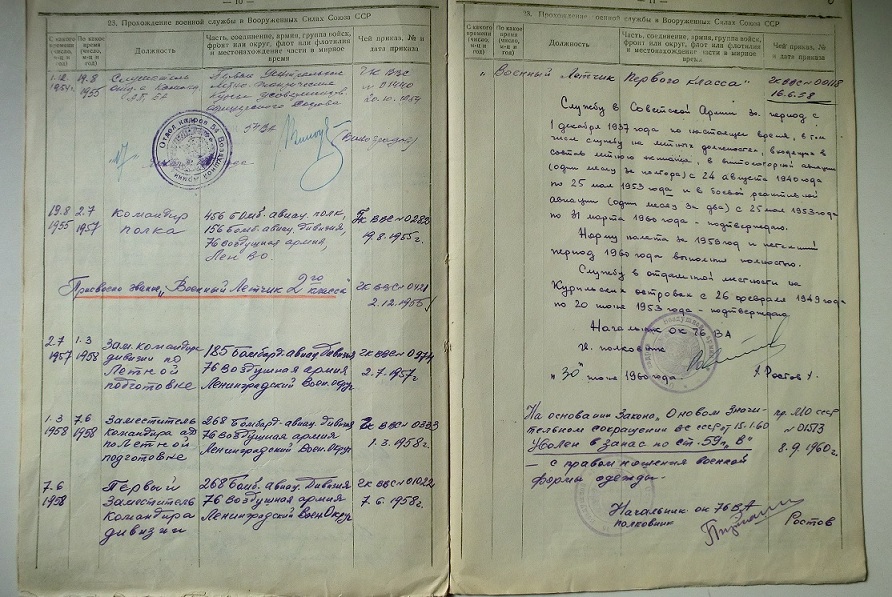 — 10 —
23. Прохождение военной службы в Вооруженных Силах Союза ССР
С какого времени (число, м-ц и год)
По какое время (число, м-ц и год)
Должность
Часть, соединение, армия, группа войск, фронт или округ, флот или флотилия и местонахождение части в мирное время
Чей приказ, № и дата приказа
1.12.1954
19.8 1955
Слушатель
курсы усовершенств.
офицерского состава
ГК ВВС
№ 01440
20.10.1954
Отдел кадров
19.8 1955
2.7 1957
Командир
полка
456 Бомб. авиац. полк,
156 Бомб. авиац. дивизия,
76 Воздушная армия,
Лен В.О.
ГК ВВС № 0282
19.8.1955г.
Присвоено звание „Военный Летчик 2го класса"
ГК ВВС № 0421
2.12.1955г
2.7 1957
1.3 1958
Зам. командира
дивизии по
Летной
подготовке
185 Бомбард. авиац. дивизия
76 Воздушная армия
Ленинградский Воен. округ
ГК ВВС № 0974
2.7.1957г.
1.3 1958
7.6 1958
Заместитель
Командира ад
по Летной
подготовке
268 Бомбард. авиац. дивизия
76 Воздушная армия
Ленинградский Воен. Округ
ГК ВВС № 0333
1.3.1958г.
7.6 1958
Первый
Заместитель
Командира
дивизии
268 Бомб. авиац. Дивизия
76 Воздушная армия
Ленинградский Воен Округ
ГК ВВС № 01022
7.6.1958г.
— 11 —
23. Прохождение военной службы в Вооруженных Силах Союза ССР
С какого времени (число, м-ц и год)
По какое время (число, м-ц и год)
Должность
Часть, соединение, армия, группа войск, фронт или округ, флот или флотилия и местонахождение части в мирное время
Чей приказ, № и дата приказа
„Военный Летчик Первого класса"
ГК ВВС № 0118
16.6.58
Службу в Советской Армии за период с
1 декабря 1937 года по настоящее время, в том
числе службу на летных должностях, входящих в
состав летного экипажа, в винтомоторной авиации
(один месяц за полтора) с 24 августа 1940 года
по 25 мая 1953 года и в боевой реактивной
авиации (один месяц за два) с 25 мая 1953 года
по 31 марта 1960 года - подтверждаю.
Норму налета за 1959 год и
период 1960 года выполнил полностью.
Службу в отдаленной местности на
Курильских островах с 26 февраля 1949 года
по 20 июня 1953 года - подтверждаю.
Начальник ОК 76 ВА
полковник
„30" июня 1960 года
Ростов
На основании Закона „О новом значи-
тельном сокращении ВС СССР" от 15.1.60
Уволен в запас по ст. 59 п „В"
— с правом ношения военной
формы одежды.
пр. МО СССР
№ 01513
8.9.1960г.
Начальник ОК 76 ВА
полковник
Ростов